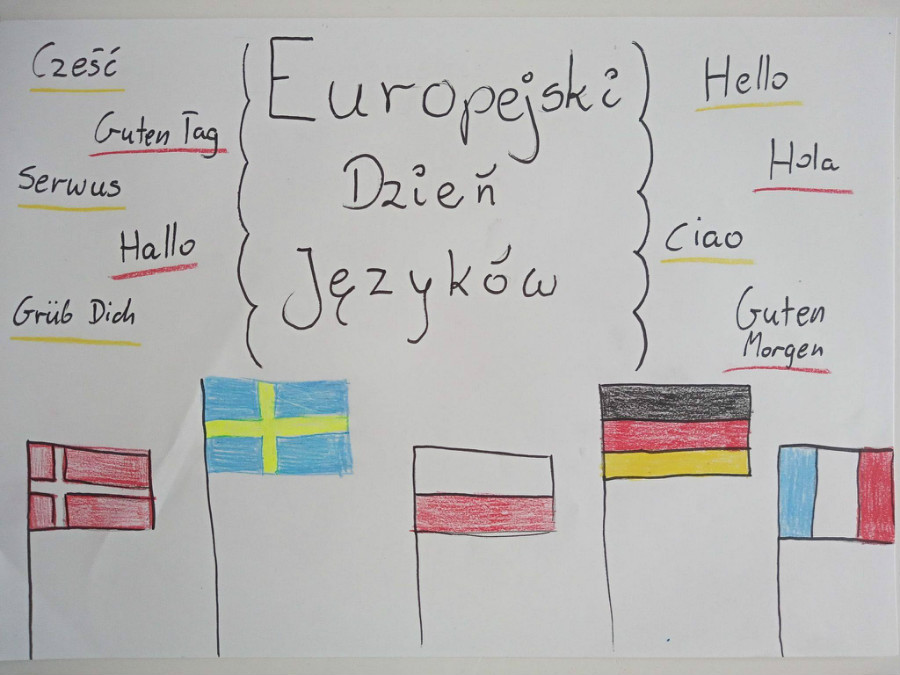 Cześć
Guten Tag
Serwus
Hallo
Grüb Dich
Europejski
Dzień
Języków
Hello
Hola
Ciao
Guten
Morgen